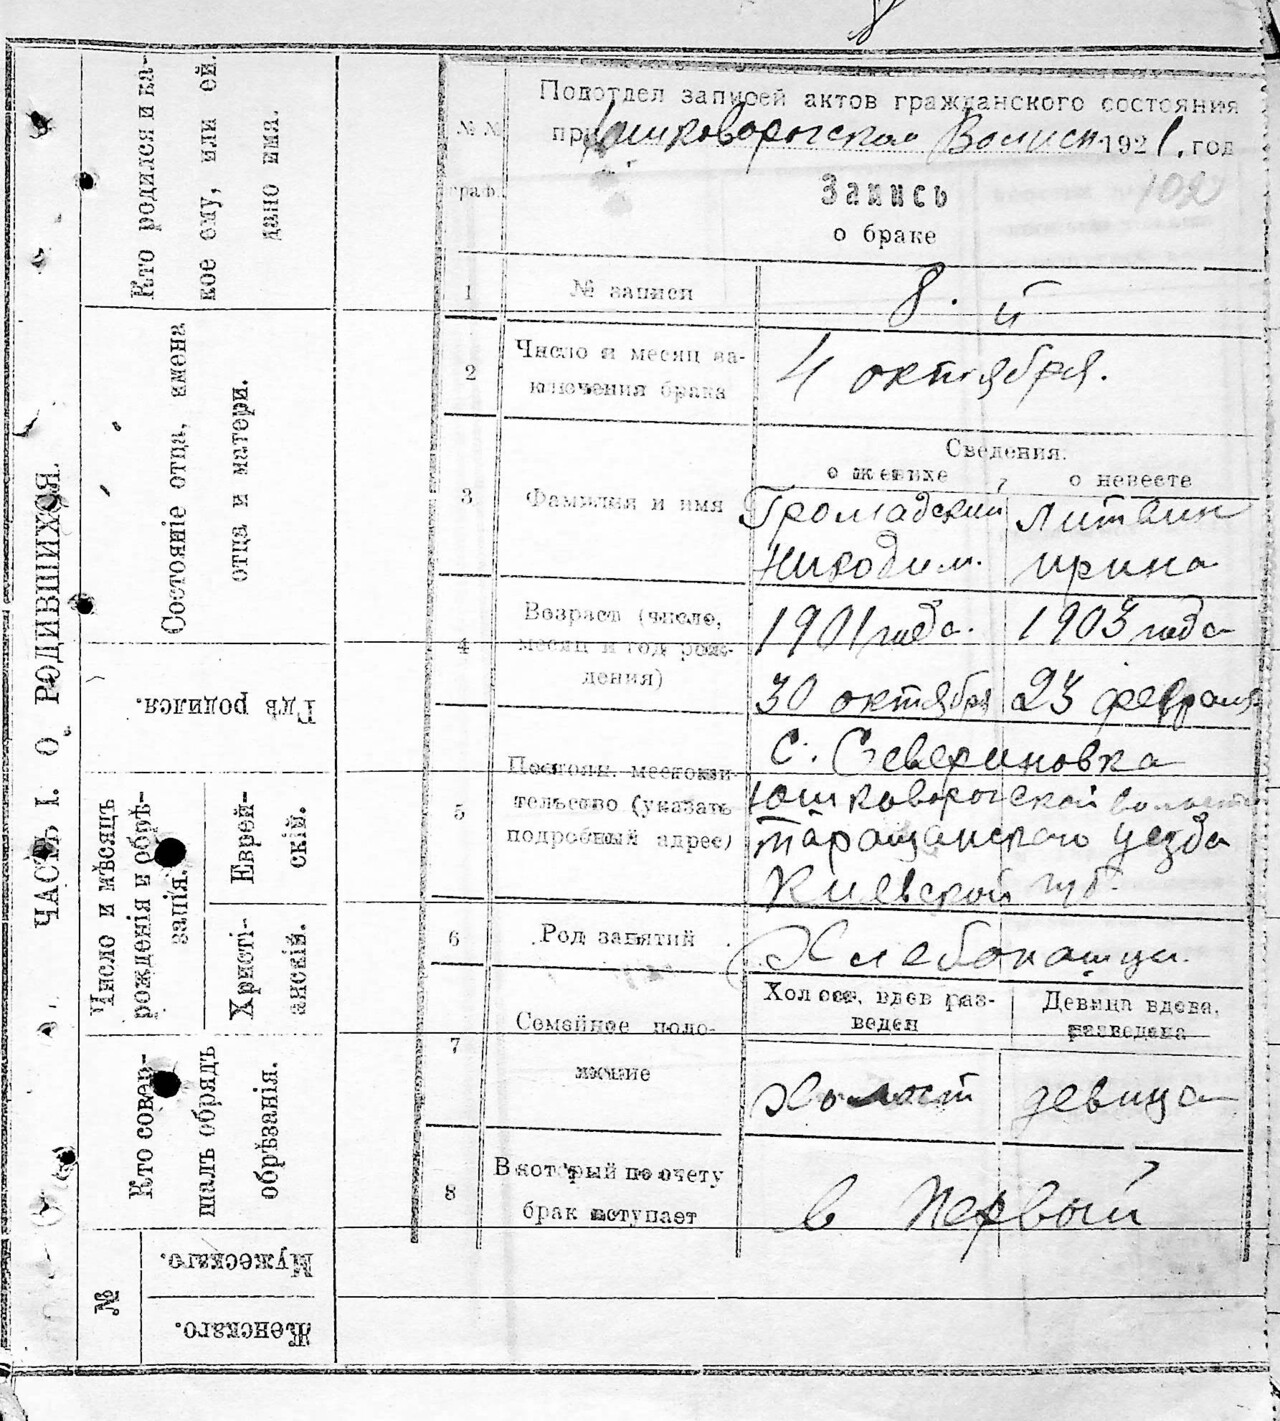 8
ЧАСТЬ I. О РОДИВШИХСЯ.
Кто родился и ка-
кое ему, или ей.
дано имя.
Состояніе отца, имена
отца и матери.
Гдѣ родился.
Число и мѣсяцъ
рожденія и обрѣ-
занія.
Еврей-
скій.
Христі-
анскій.
Кто совер-
шалъ обрядъ
обрѣзанія.
№
Мужескаго.
Женскаго.
№ №
граф.
Подотдел записей актов гражданского состояния
при Юшковорогской Волисп. 1921. год
102
Запись
о браке
1 № записи 8. й
2 Число и месяц за-
ключения брака
4 октября.
3 Фамилия и имя
Сведения.
о женихе, о невесте
Громадский Литвин
Никодим. Ирина
4 Возраст (число,
месяц и год рож-
дения)
1901 года. 1903 года
30 октября 23 февраля
5 Постоян. местожи-
тельство (указать
подробный адрес)
С. Севериновка
Юшковорогской волости
Таращанского уезда
Киевской губ.
6 Род занятий Хлебопашцы.
7 Семейное поло-
жение
Холост, вдов раз-
веден
Девица вдова,
разведена
Холост девица
8 В который по счету
брак вступает
в Первый